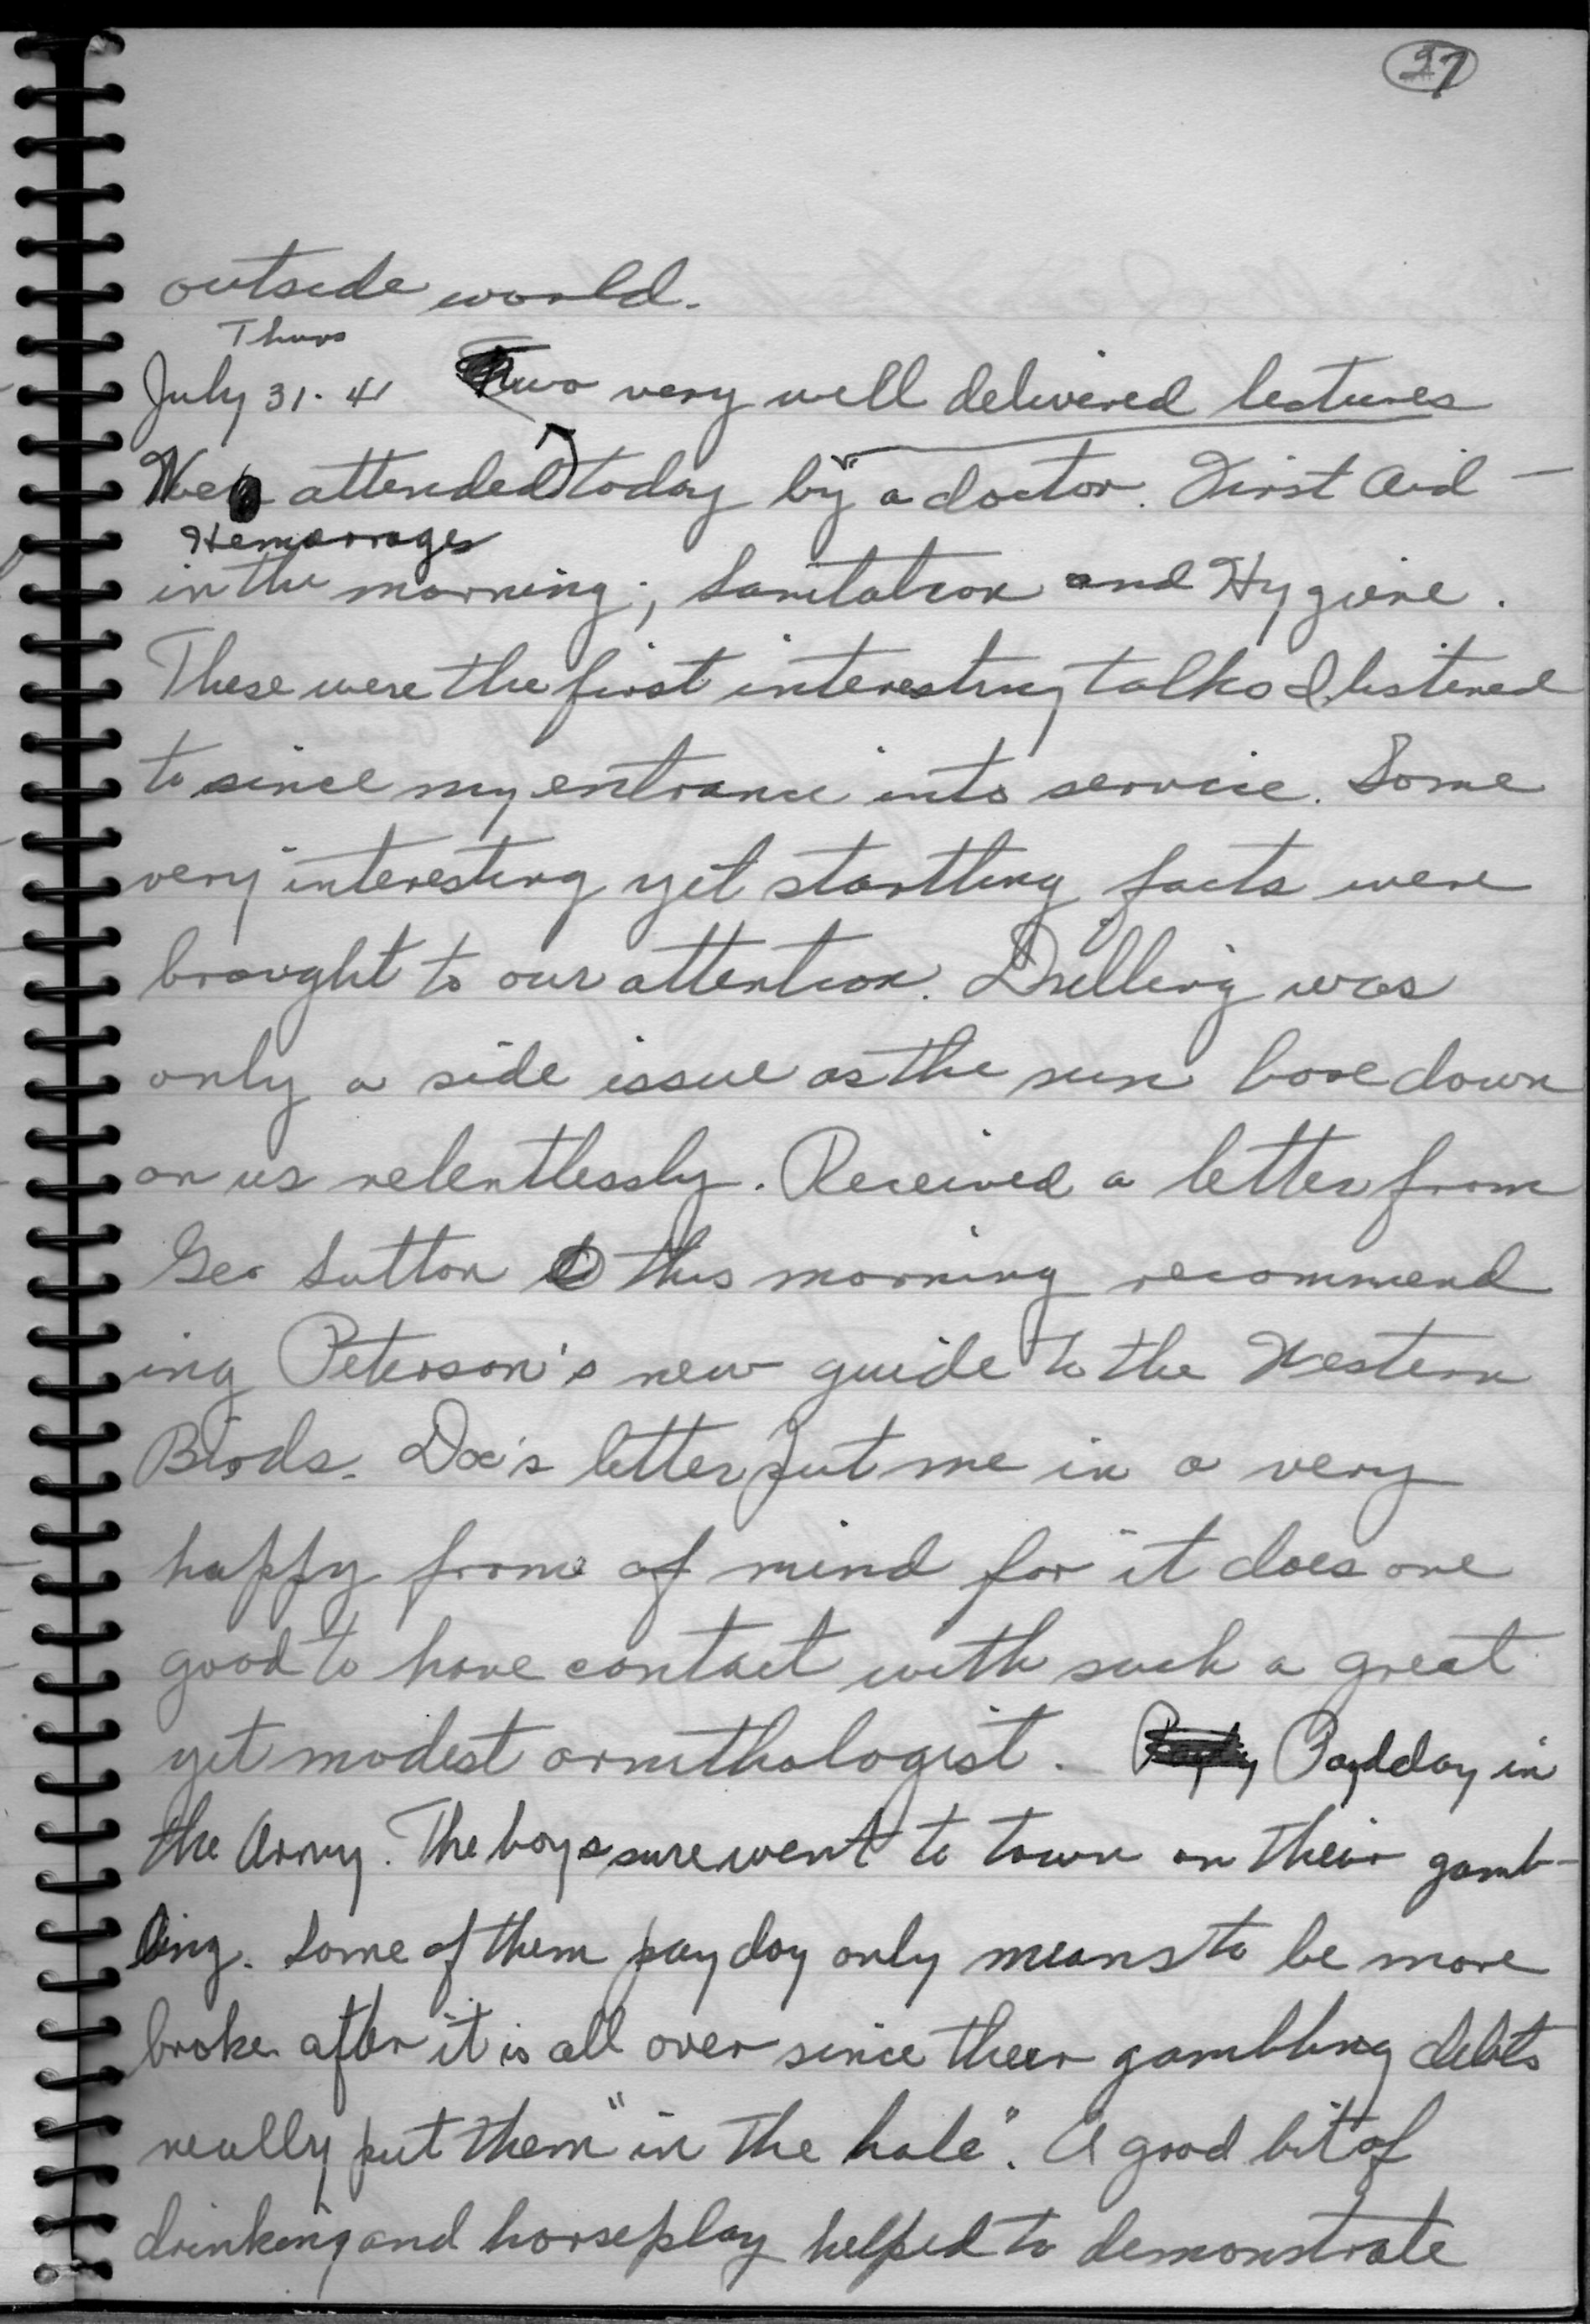 27
outside world.
Thurs
July 31. 41 Two very well delivered lectures
We attended today by a doctor. First Aid —
Hemorrages
in the morning; Sanitation and Hygiene.
These were the first interesting talks I listened
to since my entrance into service. Some
very interesting yet startling facts were
brought to our attention. Drilling was
only a side issue as the sun bore down
on us relentlessly. Received a letter from
Geo Sutton this morning recommend
ing Peterson's new guide to the Western
Birds. Doc's letter put me in a very
happy frame of mind for it does one
good to have contact with such a great
yet modest ornithologist. Payday in
the Army. The boys sure went to town on their gamb-
ling. Some of them payday only means to be more
broke after it is all over since their gambling debts
really put them "in the hole". A good bit of
drinking and horseplay helped to demonstrate